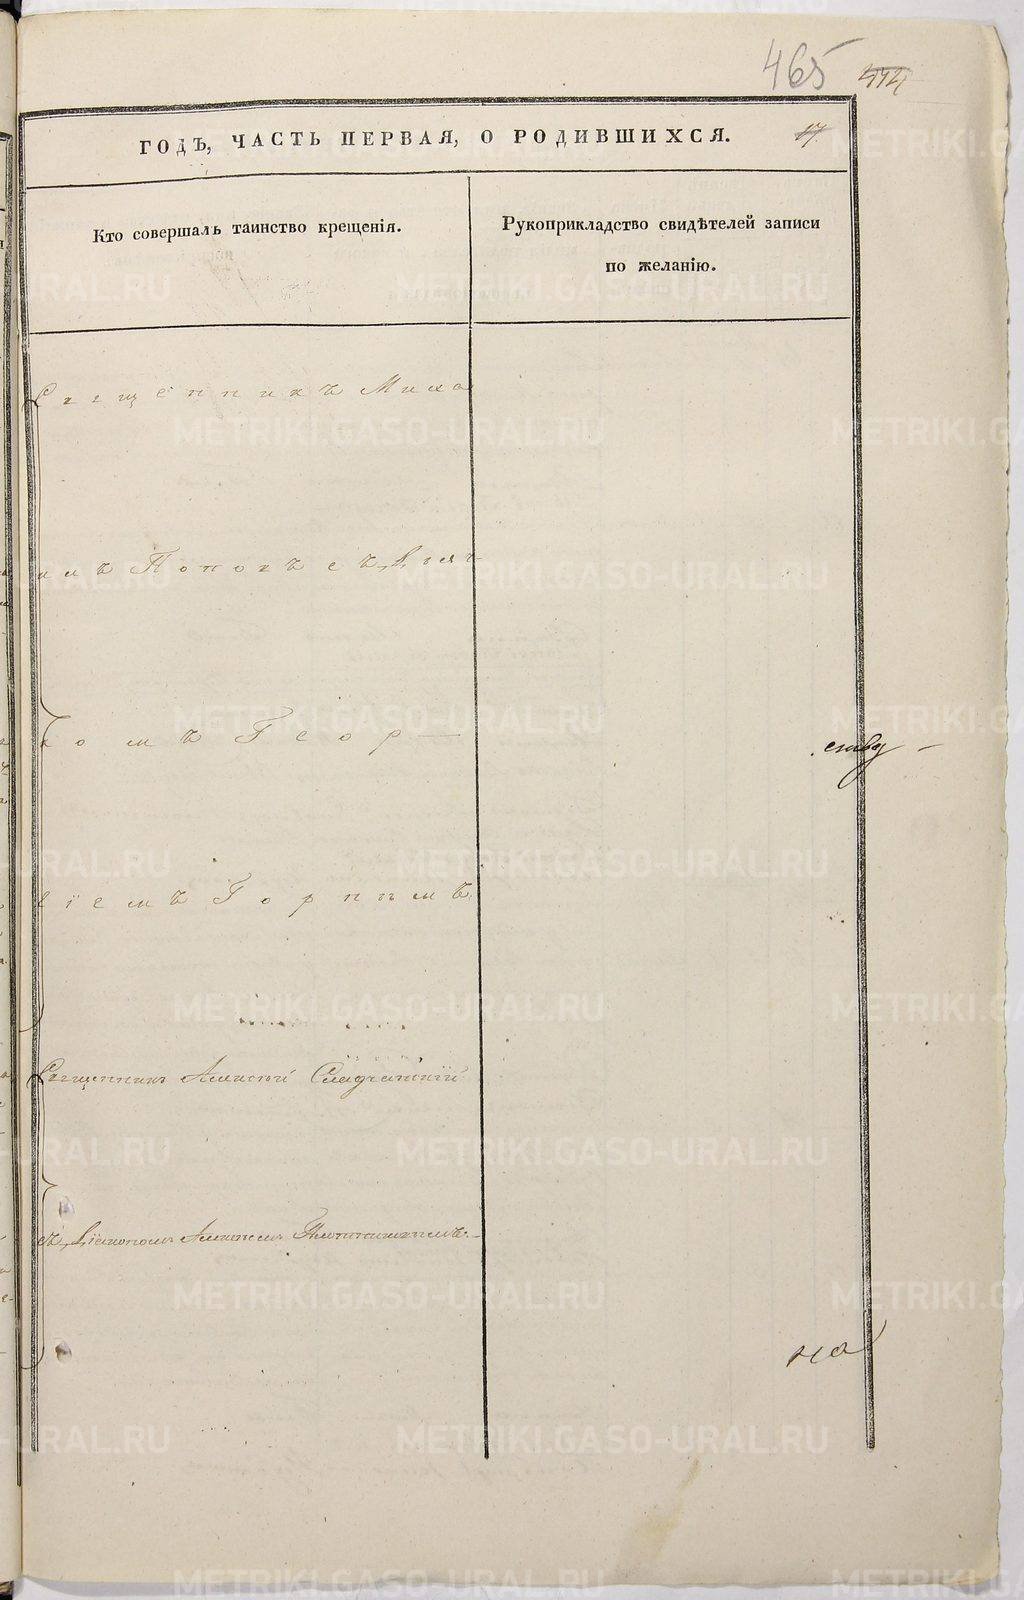 465 414
17
ГОДЪ, ЧАСТЬ ПЕРВАЯ, О РОДИВШИХСЯ.
Кто совершалъ таинство крещенія.
Рукоприкладство свидѣтелей записи
по желанію.
Священникъ Миха
илъ Поповъ съ Діак
ономъ Геор
гіемъ Горнымъ
ству
Священникъ Алексѣй
съ Діакономъ
на
METRIKI.GASO-URAL.RU